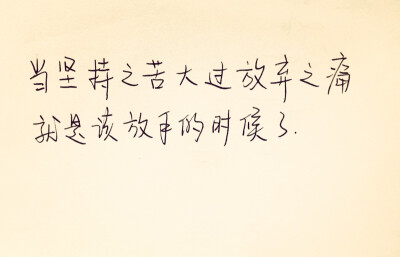 当坚持之苦大过放弃之痛
就是该放手的时候了.